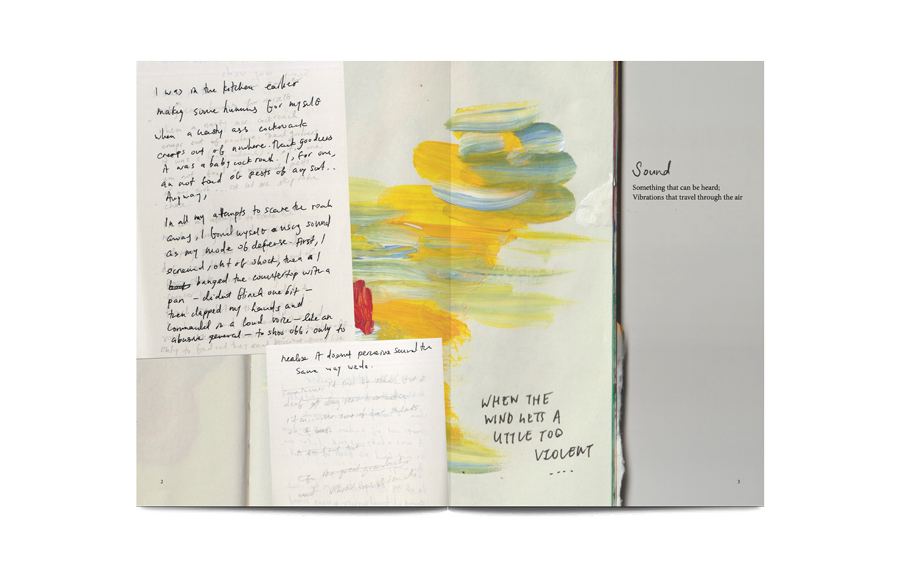 I was in the kitchen earlier
making some hummus for myself
when a nasty ass cockroach
creeps out of nowhere. Thank goodness
it was a baby cockroach. I, for one,
am not fond of pests of any sort..
Anyway,
In all my attempts to scare the roach
away, I found myself using sound
as my mode of defense. First, I
screamed, out of shock, then I
banged the countertop with a
pan – didn't flinch one bit –
then clapped my hands and
commanded in a loud voice – like an
abusive general – to shoo off; only to
realise it doesn't perceive sound the
same way we do.
WHEN THE
WIND GETS A
LITTLE TOO
VIOLENT
....
Sound
Something that can be heard;
Vibrations that travel through the air
2
3